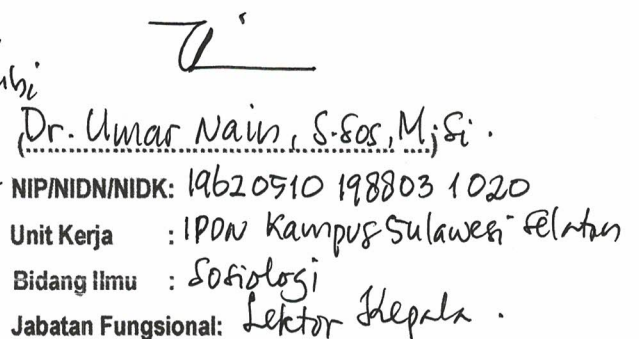 (Dr. Umar Nain, S.Sos, M,Si.
NIP/NIDN/NIDK: 19620510 198803 1020
Unit Kerja : IPDN Kampus Sulawesi Selatan
Bidang Ilmu : Sosiologi
Jabatan Fungsional: Lektor Kepala.